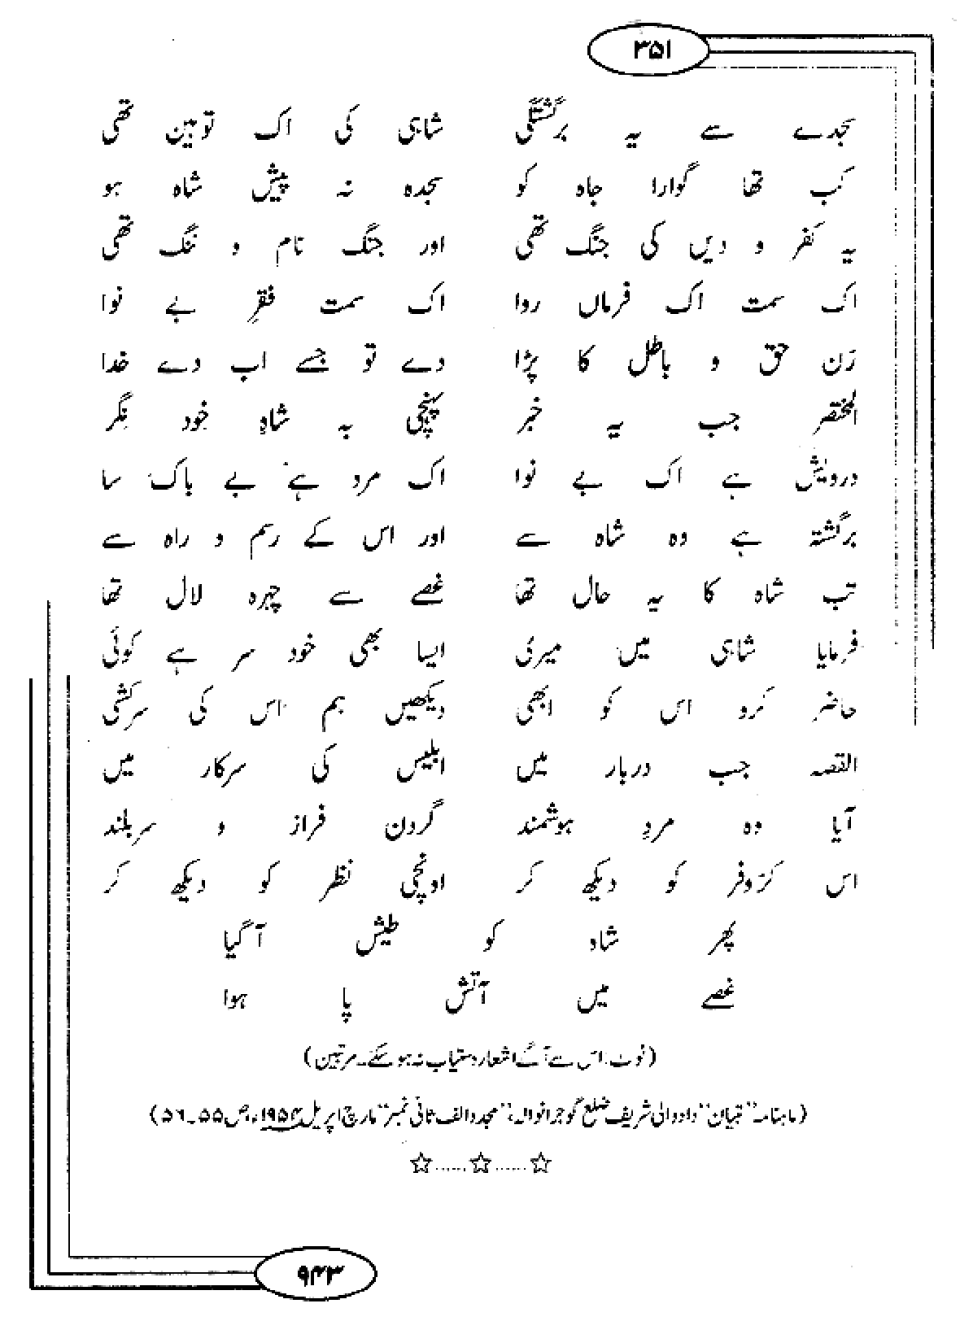 ۳۵۱
سجدے سے یہ برگشتگی شاہی کی اک توہین تھی
کب تھا گوارا جاہ کو سجدہ نہ پیش شاہ ہو
یہ کفر و دیں کی جنگ تھی اور جنگ نام و ننگ تھی
اک سمت اک فرماں روا اک سمت فقرِ بے نوا
رَن حق و باطل کا پڑا دے تو جسے اب دے خدا
المختصر جب یہ خبر پہنچی بہ شاہِ خود نگر
درویش ہے اک بے نوا اک مرد ہے بے باک سا
برگشتہ ہے وہ شاہ سے اور اس کے رسم و راہ سے
تب شاہ کا یہ حال تھا غصے سے چہرہ لال تھا
فرمایا شاہی میں میری ایسا بھی خود سر ہے کوئی
حاضر کرو اس کو ابھی دیکھیں ہم اس کی سرکشی
القصہ جب دربار میں ابلیس کی سرکار میں
آیا وہ مردِ ہوشمند گردن فراز و سربلند
اس کرّوفر کو دیکھ کر اونچی نظر کو دیکھ کر
پھر شاہ کو طیش آ گیا
غصے میں آتش پا ہوا
(نوٹ: اس سے آگے اشعار دستیاب نہ ہو سکے۔ مرتبین)
(ماہنامہ "تبیان" دادوالی شریف ضلع گوجرانوالہ، "مجدد الف ثانی نمبر" مارچ اپریل ۱۹۵۴ء، ص ۵۵۔۵۶)
☆......☆......☆
۹۴۳